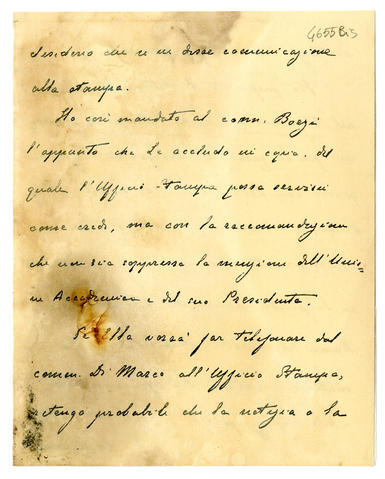 4655 Bis
desiderio che se ne desse comunicazione
alla stampa.
Ho così mandato al comm. Boezi
l'appunto che Le accludo in copia, del
quale l'Ufficio Stampa possa servirsi
come crede, ma con la raccomandazione
che non sia soppressa la menzione dell'Unio=
ne Accademica e del suo Presidente.
Se Ella vorrà far telefonare dal
comm. Di Marco all'Ufficio Stampa,
ritengo probabile che la notizia o la